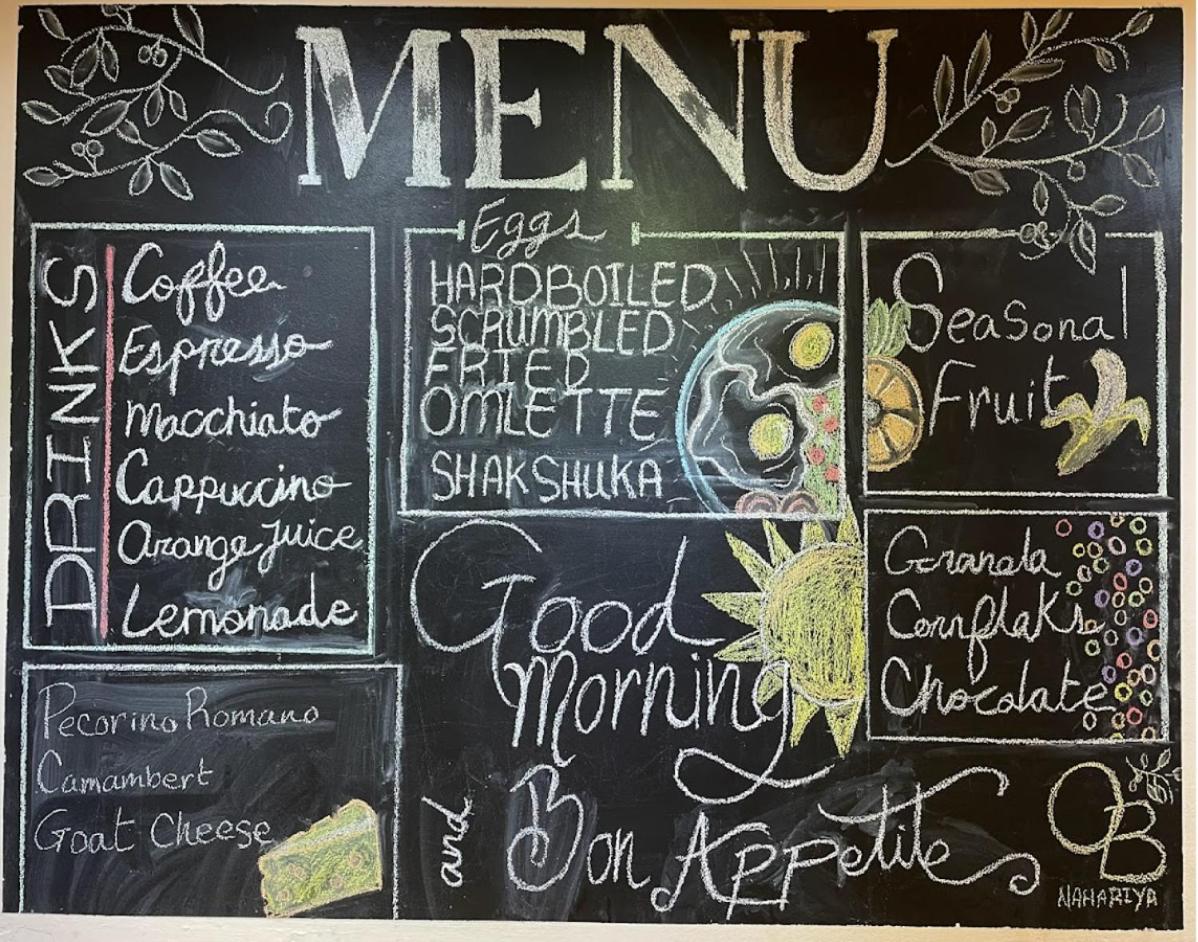 MENU
DRINKS
Coffee
Espresso
Macchiato
Cappuccino
Arange Juice
Lemonade
Eggs
HARDBOILED
SCRUMBLED
FRIED
OMLETTE
SHAKSHUKA
Seasonal
Fruit
Granola
Cornflaks
Chocolate
Pecorino Romano
Camambert
Goat Cheese
Good
Morning
and
Bon Appetite
OB
NAHARIYA